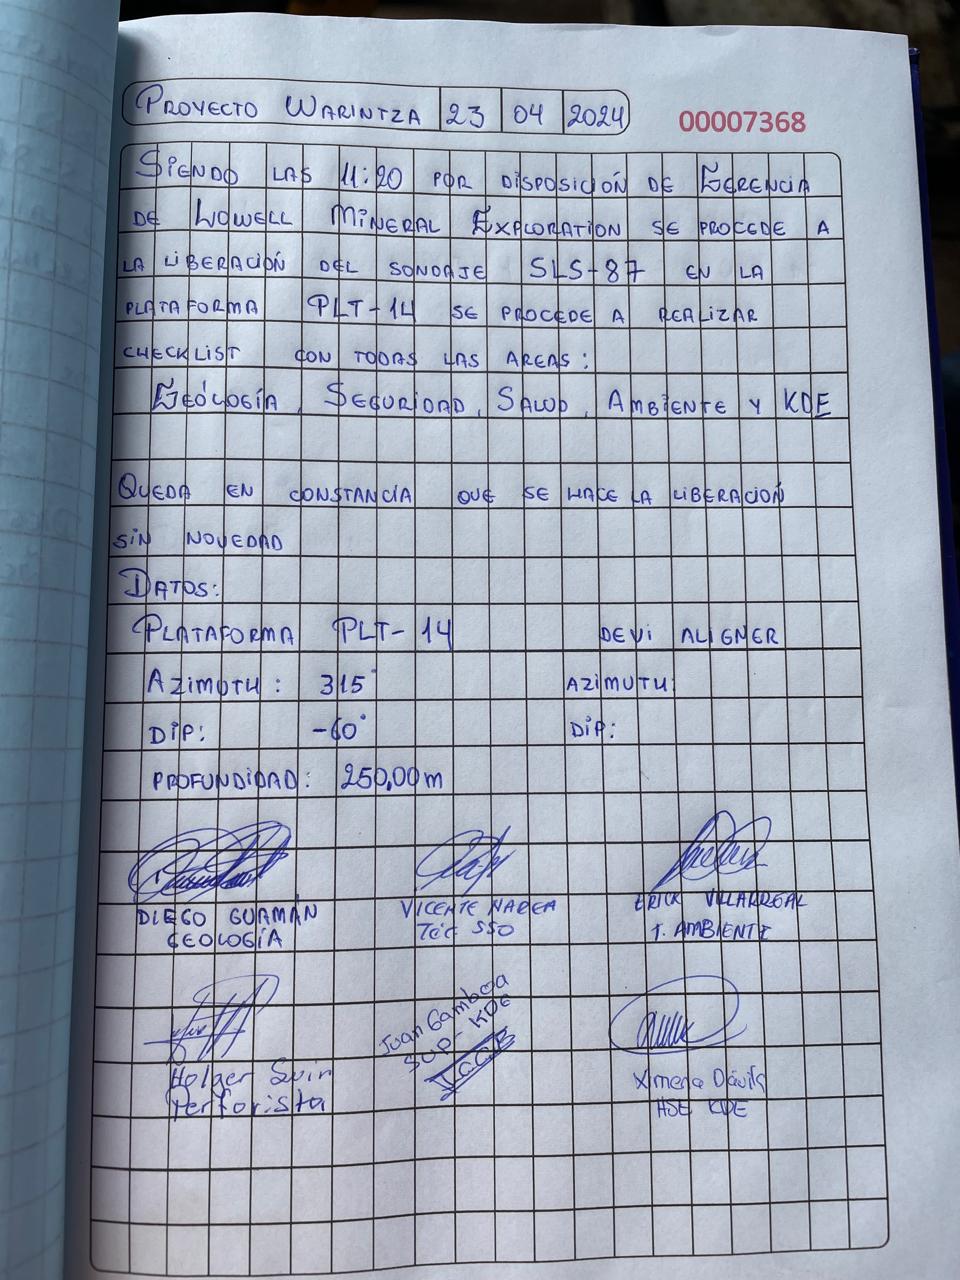 PROYECTO WARINTZA 23 04 2024
00007368
SIENDO LAS 11:20 POR DISPOSICIÓN DE GERENCIA
DE LOWELL MINERAL EXPLORATION SE PROCEDE A
LA LIBERACIÓN DEL SONDAJE SLS-87 EN LA
PLATAFORMA PLT-14 SE PROCEDE A REALIZAR
CHECKLIST CON TODAS LAS AREAS:
GEÓLOGÍA, SEGURIDAD, SALUD, AMBIENTE Y KDE
QUEDA EN CONSTANCIA QUE SE HACE LA LIBERACIÓN
SIN NOVEDAD
DATOS:
PLATAFORMA PLT-14 DEVI ALIGNER
AZIMUTH: 315° AZIMUTH:
DIP: -60° DIP:
PROFUNDIDAD: 250,00m
DIEGO GUAMÁN VICENTE NAREA ERICK VILLARREAL
GEOLOGÍA Téc SSO T. AMBIENTE
Juan Gamboa
SUP- KDE
Holger Suin Ximena Dávila
Perforista HSE KDE